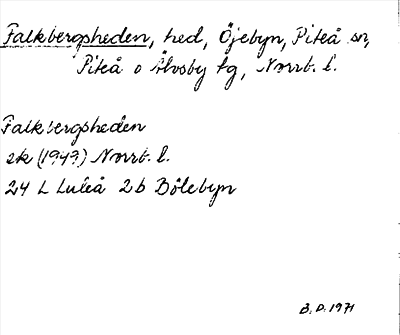 Falkbergsheden, hed, Öjebyn, Piteå sn,
Piteå o Älvsby tg, Norrb. l.
Falkbergsheden
ek (1949) Norrb. l.
24 L Luleå 2b Bölebyn
B.D. 1971